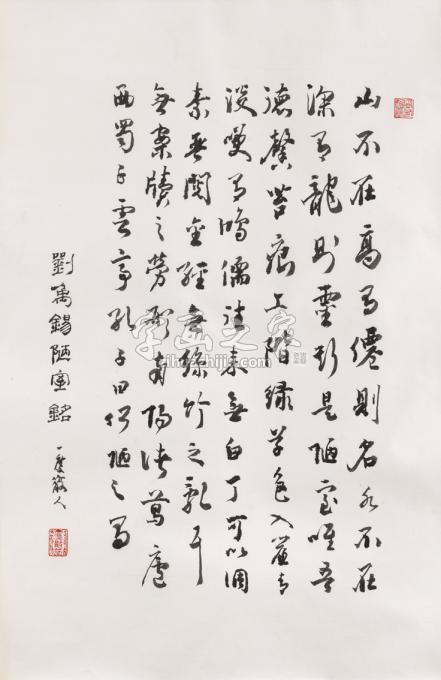 山不在高有僊則名水不在
深有龍則靈斯是陋室唯吾
德馨苔痕上階綠草色入簾青
談笑有鴻儒往來無白丁可以調
素琴閱金經無絲竹之亂耳
無案牘之勞形南陽諸葛廬
西蜀子雲亭孔子曰何陋之有
劉禹錫陋室銘
人
字画之家
zihuazhijia.com